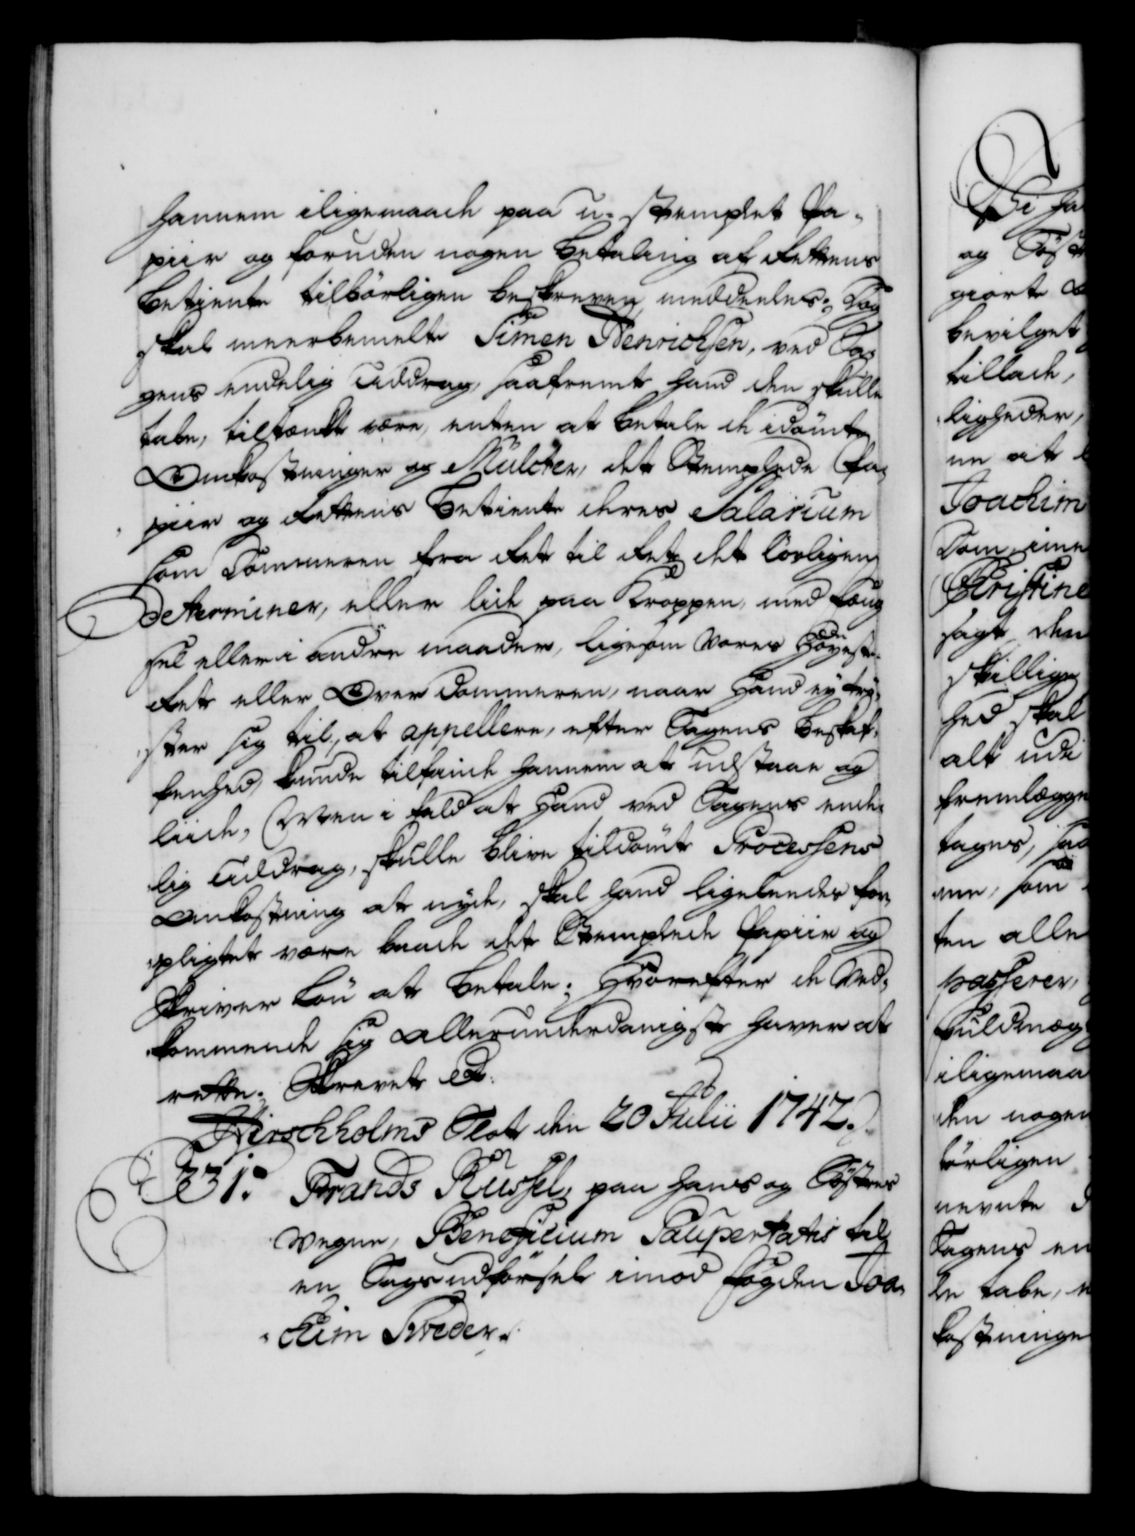 hannem iligemaade paa u-stemplet Pa-
piir og foruden nogen betaling af Rettens
betiente tilbörligen beskreven meddeeles; Dog
skal meerbemelte Simen Henrichsen, ved Sa-
gens endelig Uddrag, saafremt hand den skulle
tabe, tiltænkt være, enten at betale de idömte
Omkostninger og Mülcter, det Stemplede Pa-
piir og Rettens betiente deres Salarium
som Dommeren fra Ret til Ret det lovligen
determinerer, eller lide paa Kroppen, med fæng-
sel eller i andre maader, ligesom Vores Höyeste-
Ret eller Over Dommeren, naar Hand ey trö-
ster sig til, at appellere, efter Sagens beskaf-
fenhed, kunde tilfinde hannem at udstaae og
liide, Men i fald at Hand ved Sagens ende-
lig Uddrag, skulle blive tildömt Processens
Omkostning at nyde, skal hand ligeleedes for-
pligtet være baade det Stemplede Papiir og
Skriver Lön at betale; Hvorefter de Ved-
kommende sig allerunderdanigst haver at
rette. Skrevet etc.
Hirschholms Slot den 20 Julii 1742.
331. Frands Russel, paa hans og Söstres
Vegne, Beneficium Paupertatis til
en Sags udförsel imod fogden Joa-
chim
Vi ha
og Söst
giorte
bevilget
tillade,
ligheder,
ne at
Joachim
Dom, ime
Christine
sagt, den
skillige
hed skal
alt udi
fremlægge
tages, saa
ere, som
ten alle
passerer,
fuldmæg
iligemaa
den nogen
börligen
nevnte
Sagens en
le tabe,
kostninge